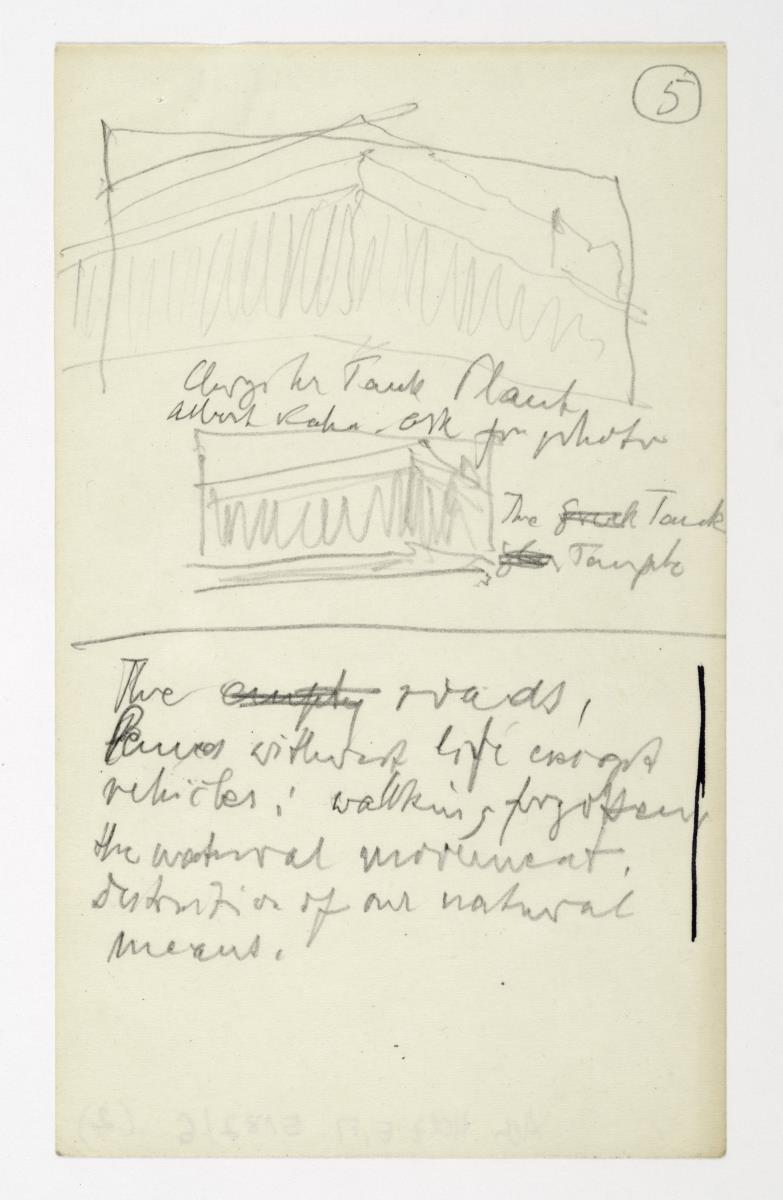 5
Chrysler Tank Plant
Albert Kahn - ask for photo
The Greek Tank
Temple
The empty roads,
lanes without life except
vehicles; walking, forgotten
the natural movement,
distruction of our natural
means.